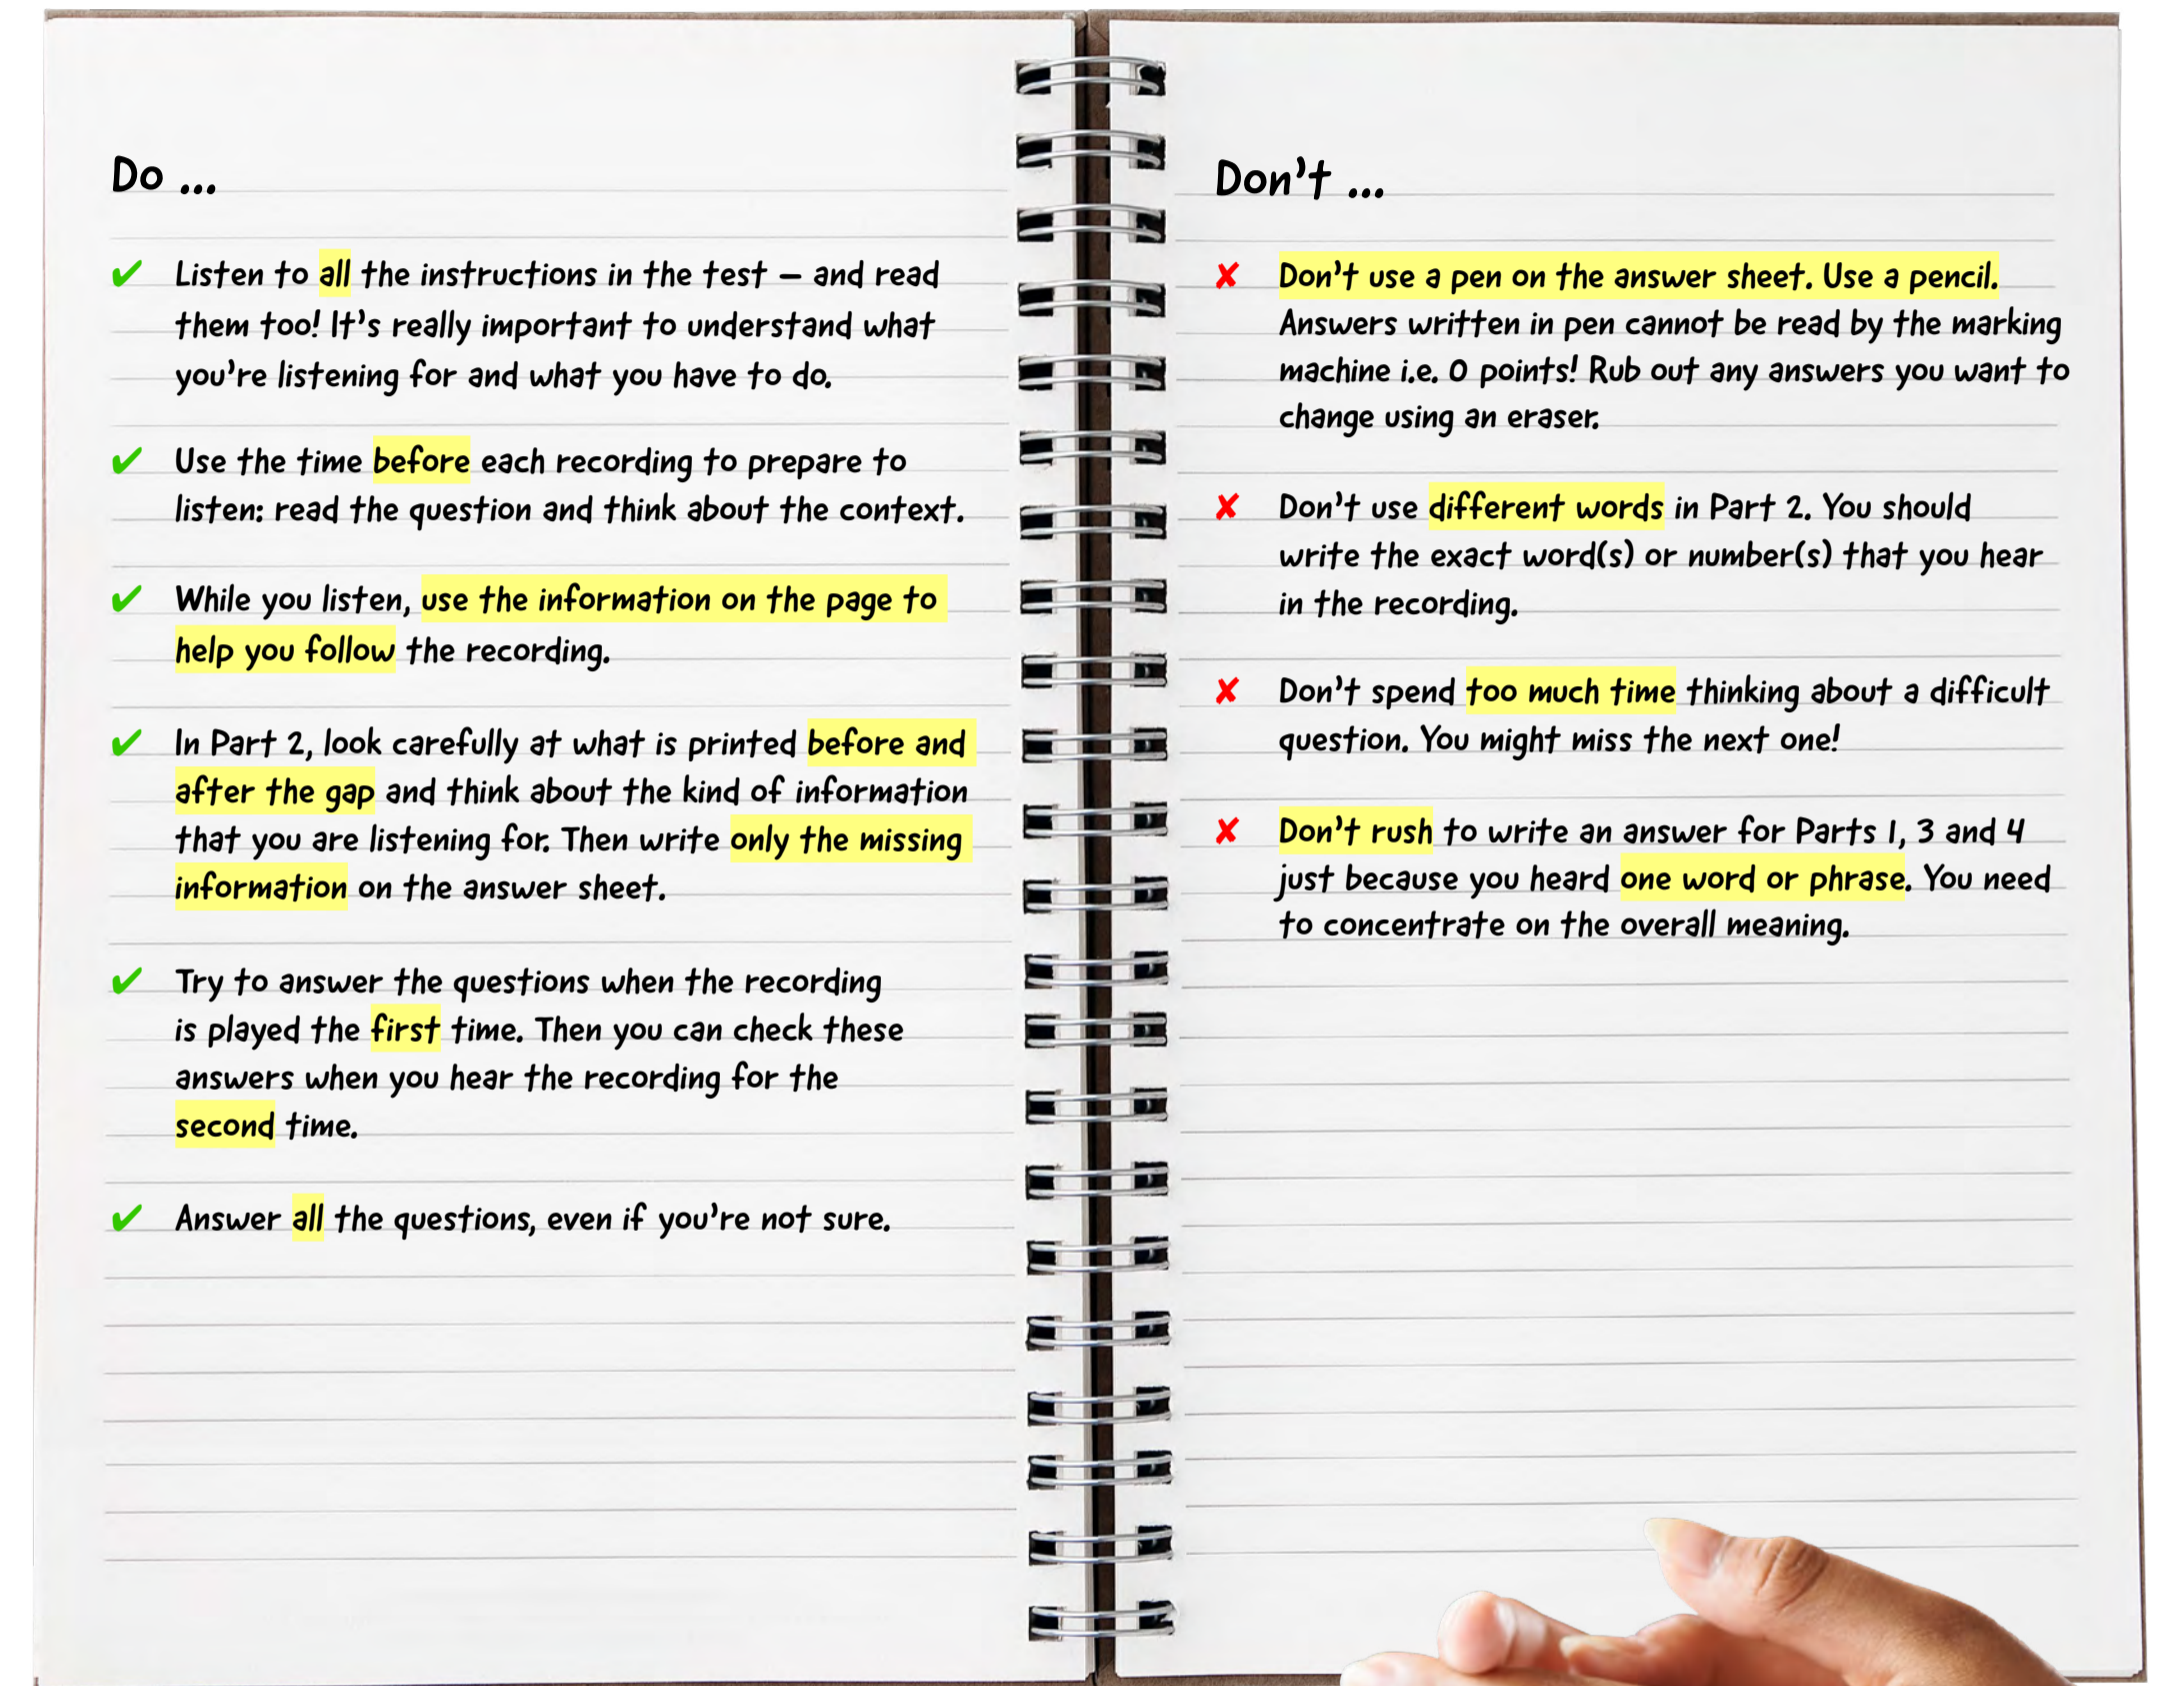 Do ...
✔ Listen to all the instructions in the test – and read
them too! It's really important to understand what
you're listening for and what you have to do.
✔ Use the time before each recording to prepare to
listen: read the question and think about the context.
✔ While you listen, use the information on the page to
help you follow the recording.
✔ In Part 2, look carefully at what is printed before and
after the gap and think about the kind of information
that you are listening for. Then write only the missing
information on the answer sheet.
✔ Try to answer the questions when the recording
is played the first time. Then you can check these
answers when you hear the recording for the
second time.
✔ Answer all the questions, even if you're not sure.
Don't ...
✘ Don't use a pen on the answer sheet. Use a pencil.
Answers written in pen cannot be read by the marking
machine i.e. 0 points! Rub out any answers you want to
change using an eraser.
✘ Don't use different words in Part 2. You should
write the exact word(s) or number(s) that you hear
in the recording.
✘ Don't spend too much time thinking about a difficult
question. You might miss the next one!
✘ Don't rush to write an answer for Parts 1, 3 and 4
just because you heard one word or phrase. You need
to concentrate on the overall meaning.